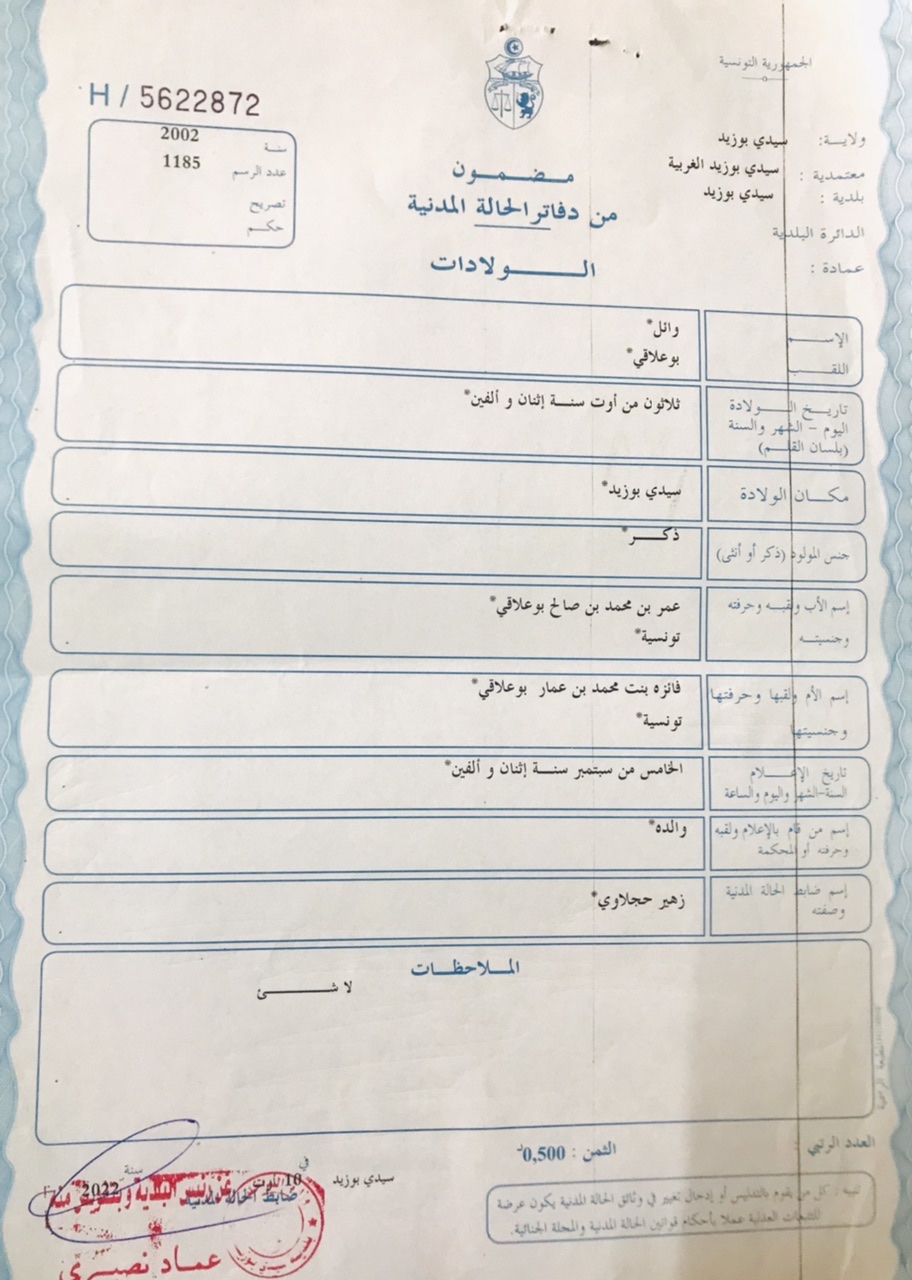 الجمهورية التونسية
H / 5622872
سنة 2002
عدد الرسم 1185
تصريح
حكم
ولاية: سيدي بوزيد
معتمدية : سيدي بوزيد الغربية
بلدية : سيدي بوزيد
الدائرة البلدية
عمادة :
مضمون
من دفاتر الحالة المدنية
الولادات
الإسم وائل*
اللقب بوعلاقي*
تاريخ الولادة ثلاثون من أوت سنة إثنان و ألفين*
اليوم - الشهر والسنة
(بلسان القلم)
مكان الولادة سيدي بوزيد*
جنس المولود (ذكر أو أنثى) ذكر*
إسم الأب ولقبه وحرفته عمر بن محمد بن صالح بوعلاقي*
وجنسيته تونسية*
إسم الأم ولقبها وحرفتها فائزه بنت محمد بن عمار بوعلاقي*
وجنسيتها تونسية*
تاريخ الإعلام الخامس من سبتمبر سنة إثنان و ألفين*
السنة-الشهر واليوم والساعة
إسم من قام بالإعلام ولقبه والده*
وحرفته أو المحكمة
إسم ضابط الحالة المدنية زهير حجلاوي*
وصفته
الملاحظات
لا شئ
العدد الرتبي :
الثمن : 0,500د
سيدي بوزيد في 10 أوت سنة 2022
ضابط الحالة المدنية
عن رئيس البلدية وبتفويض منه
عماد نصري
تنبيه : كل من يقوم بالتدليس أو إدخال تغيير في وثائق الحالة المدنية يكون عرضة
للتتبعات العدلية عملا بأحكام قوانين الحالة المدنية والمجلة الجنائية.